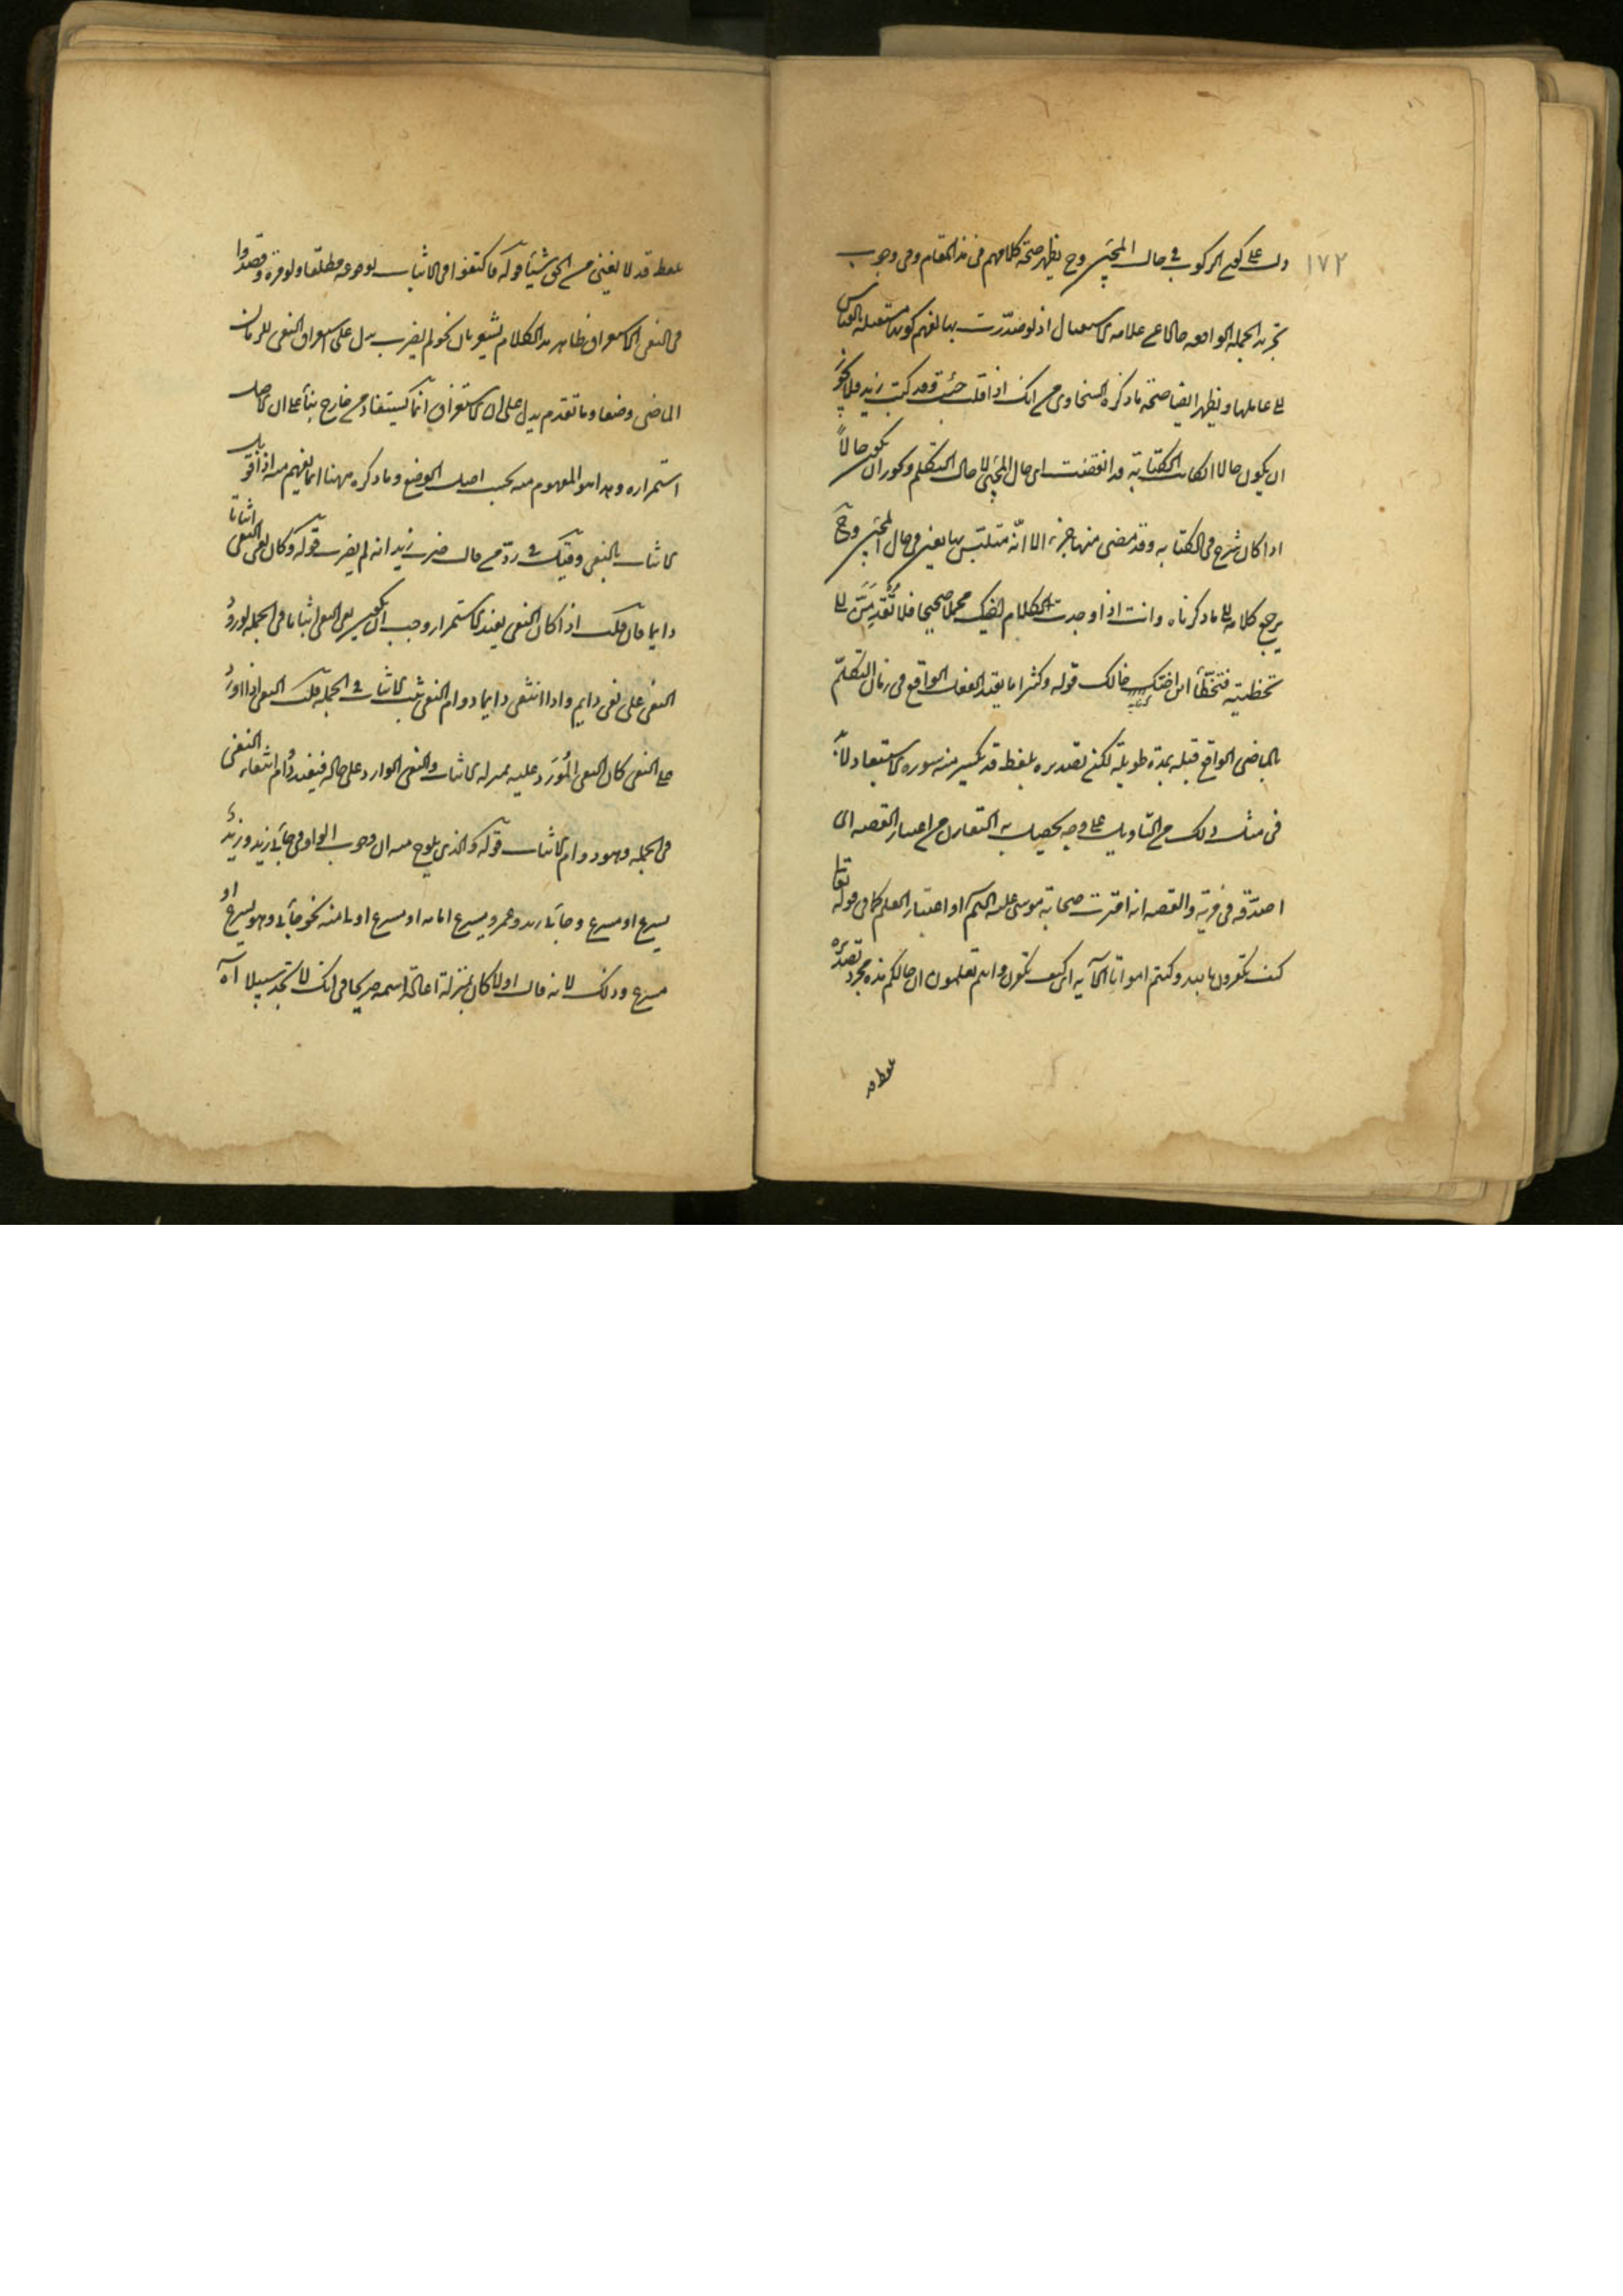 ١٧٢
دل على كون الركوب في حال المجئ وح يظهر صحة كلامهم في هذا المقام وفي وجوب
تجريد الجملة الواقعة حالا عن علامة الاستقبال اذ لو صدرت بها لفهم كونها مستقبلة بالقياس
الى عاملها ويظهر ايضا صحة ما ذكره السخاوى من انك اذا قلت جئت وقد كتب زيد فلا يجوز
ان يكون حالا ان كانت الكتابة قد انقضت اى حال المجئ لا حال التكلم ويجوز ان يكون حالاً
اذا كان شرع في الكتابة وقد مضى منها جزء الا انّه متلبّس بها يعنى في حال المجئ وح
يرجع كلامه الى ما ذكرناه وانت اذا وجدت لكلام اخيك محملا صحيحا فلا تُقْدِمَنَّ الى
تخطيته فتخطّأ ابن اخت خالك قوله وكثيرا ما يقيد الفعل الواقع في زمان التكلّم
بالماضى الواقع قبله بمدة طويلة لكن تصديره بلفظ قد يكسر منه سورة الاستبعاد لا بدّ
في مثل ذلك من التاويل على وجه يحصل به التقارن من اعتبار القصه اى
اصدّقه في مرية والقصه انه امترت صحابة موسى عليه السلم او اعتبار العلم كما في قوله تعالى
كيف تكفرون بالله وكنتم امواتا الآية اى كيف تكفرون وانتم تعلمون ان حالكم هذه مجرد تصديره
بلفظ قد
بلفظ قد لا يغنى من الحق شيئا قوله فاكتفوا في الاثبات بوقوعه مطلقا ولو مرة وقصدوا
في النفى الاستغراق ظاهر هذا الكلام يشعر بان نحو لم يضرب يدل على استغراق النفى للزمان
الماضى وضعا وما تقدم يدل على ان الاستغراق انما يستفاد من خارج بناءً على ان الاصل
استمراره وهذا هو المفهوم منه بحسب اصل الوضع وما ذكره ههنا انما يفهم منه اذا قوبل
الاثبات بالنفى وقيل في ردّ من قال ضرب زيد انه لم يضرب قوله وكان نفى النفى اثباتا
دايما فان قلت اذا كان النفى يفيد الاستمرار وجب ان يكون نفى النفى اثباتا في الجملة لورود
النفى على نفى دايم واذا انتفى دايما دوام النفى ثبت الاثبات في الجملة قلت النفى اذا اورد
على النفى كان النفى المُوْرَد عليه بمنزلة الاثبات والنفى الوارد على حاله فيفيد دوام انتفاء النفى
في الجملة وهو دوام الاثبات قوله والذى يلوح منه ان وجوب الواو في جاءنى زيد وزيدٌ
يسرع او مسرع وجاءنى زيد وعمرو يسرع امامه او مسرع اولى منه في نحو جاءنى وهو يسرع او
مسرع وذلك لانه قال اولا كان بمنزلة اعادة اسمه صريحا في انك لا تجد سبيلا آه